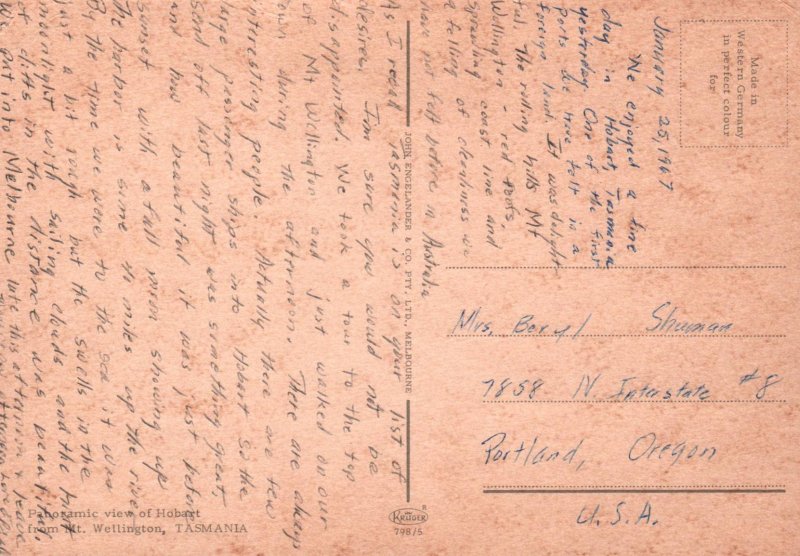 January 25, 1967
We enjoyed a fine
day in Hobart, Tasmania
yesterday One of the first
ports we have felt in a
foreign land. It was delight
ful. The rolling hills Mt
Wellington - red roofs,
sprawling coast line and
a feeling of cleanness we
have not felt before in Australia
As I recall Tasmania is on your list of
desires. I'm sure you would not be
disappointed. We took a tour to the top
of Mt. Wellington and just walked on our
own during the afternoon. There are always
interesting people. Actually there are few
large passenger ships into Hobart so the
send off last night was something great,
and how beautiful it was just before
sunset with a full moon showing up
The harbor is some miles up the river
By the time we were to the sea it was
just a bit rough but the swells in the
moonlight with sailing clouds and the
cliffs in the distance was beautiful.
We put into Melbourne late this afternoon & leave
Made in
Western Germany
in perfect colour
for:
JOHN ENGELANDER & CO. PTY LTD., MELBOURNE
Mrs. Beryl Shuman
7858 N. Interstate #8
Portland, Oregon
U.S.A.
Panoramic view of Hobart
from Mt. Wellington, TASMANIA
KRÜGER
798/5